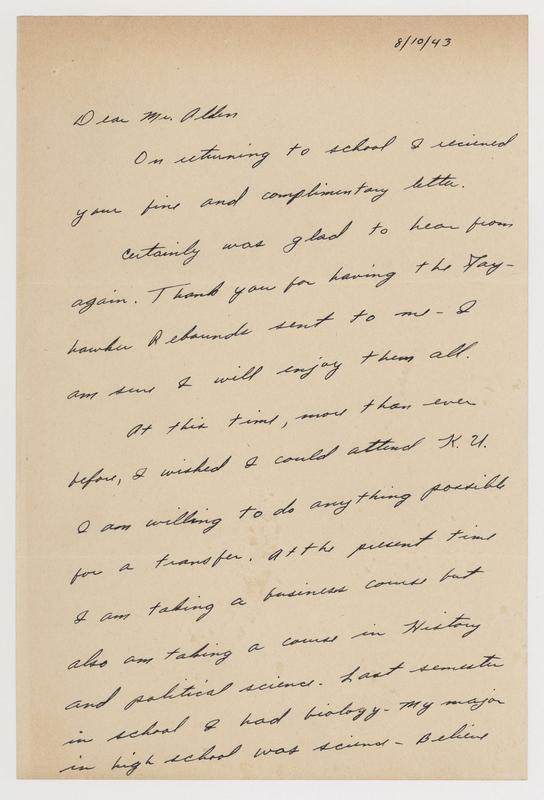 8/10/43
Dear Mr. Allen
On returning to school I recieved
your fine and complimentary letter.
Certainly was glad to hear from
again. Thank you for having the Jay-
hawker Rebounds sent to me - I
am sure I will enjoy them all.
At this time, more than ever
before, I wished I could attend K.U.
I am willing to do anything possible
for a transfer. At the present time
I am taking a business course but
also am taking a course in History
and political science. Last semester
in school I had biology - My major
in high school was science - Believe